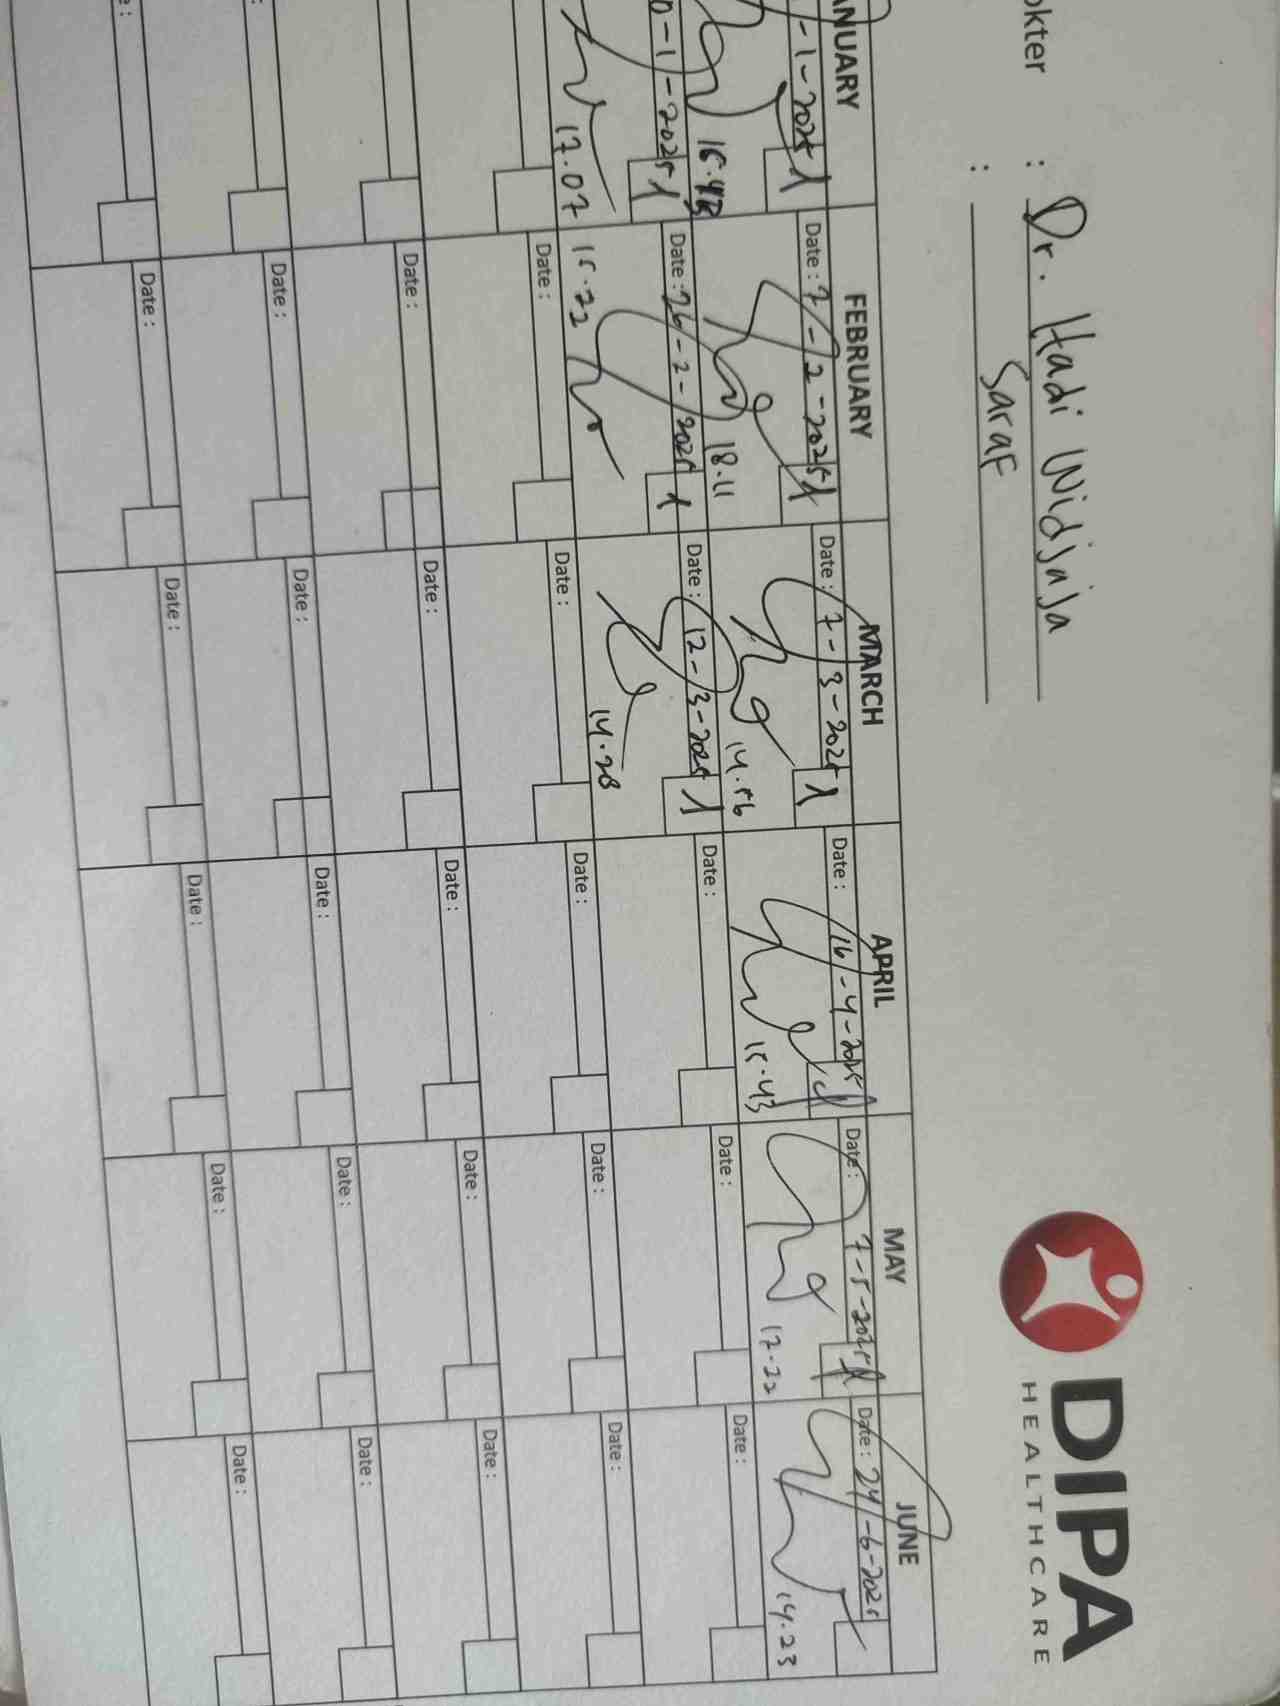 okter : Dr. Hadi Widjaja
: Saraf
DIPA
HEALTHCARE
ANUARY FEBRUARY MARCH APRIL MAY JUNE
-1-2025 1 Date : 7-2-2025 1 Date : 7-3-2025 1 Date : 16-4-2025 Date : 7-5-2025 Date : 24-6-2025
18.11 14.56 15.43 17.22 14.23
0-1-2025 1 Date : 26-2-2025 1 Date : 12-3-2025 1 Date : Date : Date :
17.07 15.22 14.28
Date : Date : Date : Date : Date :
Date : Date : Date : Date : Date :
: Date : Date : Date : Date : Date :
e : Date : Date : Date : Date : Date :